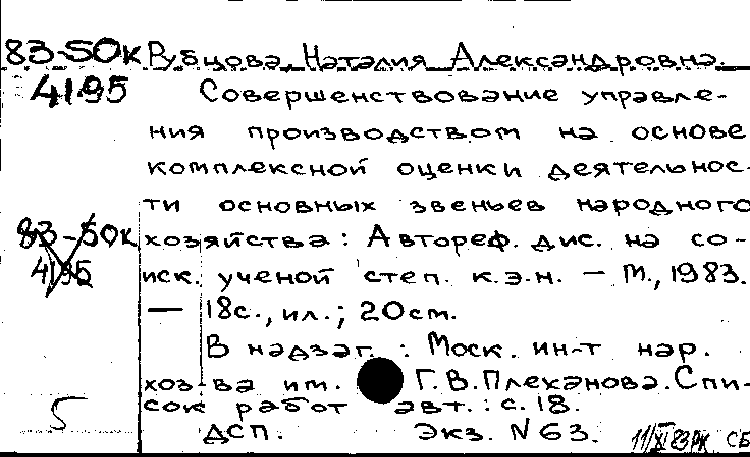 83-50к Рубцова, Наталия Александровна.
4195 Совершенствование управле-
ния производством на основе
комплексной оценки деятельнос-
ти основных звеньев народного
83-50к хозяйства: Автореф. дис. на со-
4195 иск. ученой степ. к.э.н. – М., 1983.
— 18с., ил.; 20см.
В надзаг.: Моск. ин-т нар.
хоз-ва им. Г.В.Плеханова. Спи-
5 сок работ авт.: с.18.
ДСП. Экз. N63. 11/XI 83РК СБ